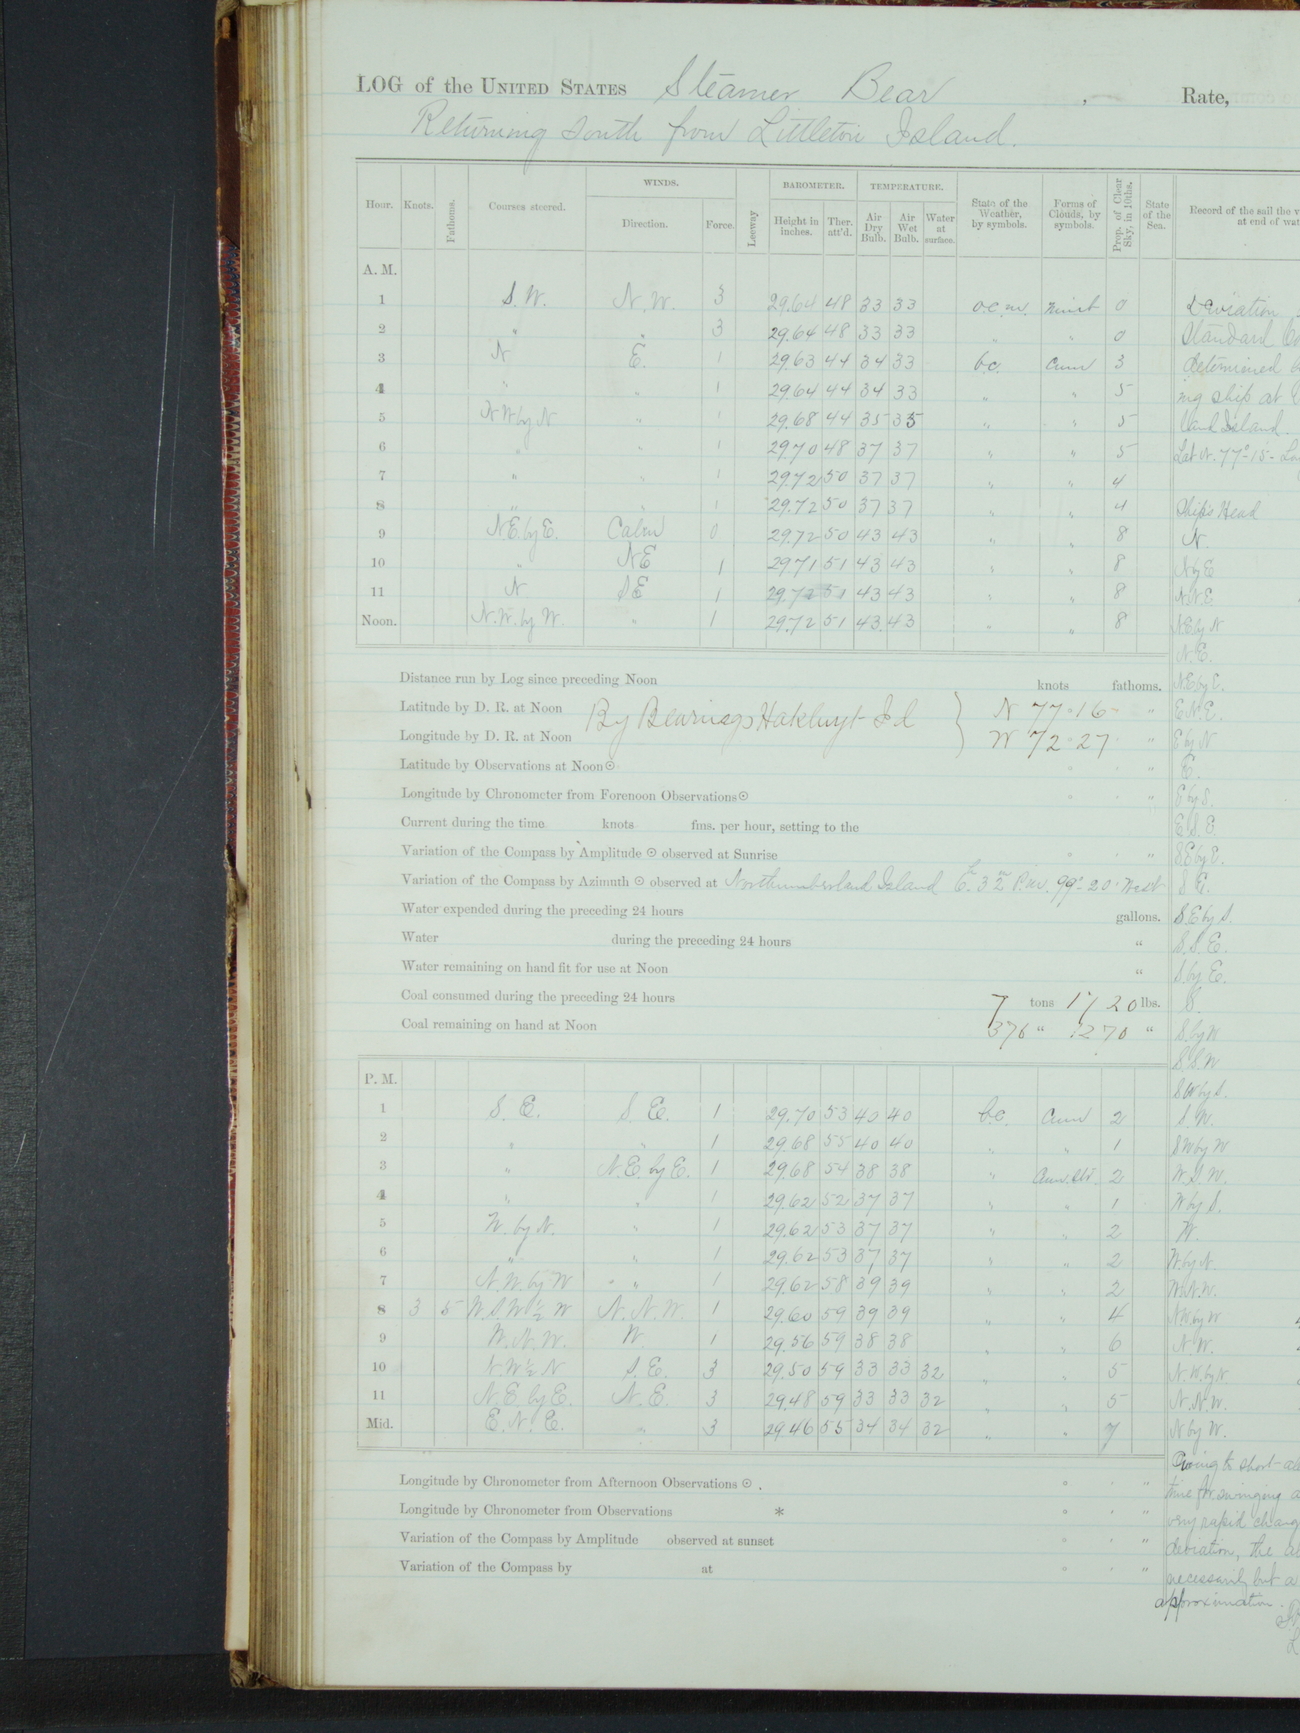 LOG of the UNITED STATES Steamer Bear , Rate,
Returning South from Littleton Island.
Hour. Knots. Fathoms. Courses steered. WINDS. Direction. Force. Leeway BAROMETER. Height in inches. Ther. att'd. TEMPERATURE. Air Dry Bulb. Air Wet Bulb. Water at surface. State of the Weather, by symbols. Forms of Clouds, by symbols. Prop. of Clear Sky, in 10ths. State of the Sea. Record of the sail the v at end of wat
A. M.
1 S. W. N. W. 3 29.64 48 33 33 o.c.m. mist 0 Deviation
2 " " 3 29.64 48 33 33 " " 0 Standard Co
3 N E. 1 29.63 44 34 33 b.c. Cum 3 determined b
4 " " 1 29.64 44 34 33 " " 5 ing ship at
5 N W by N " 1 29.68 44 35 35 " " 5 land Island.
6 " " 1 29.70 48 37 37 " " 5 Lat N. 77°-15'- Lo
7 " " 1 29.72 50 37 37 " " 4
8 " " 1 29.72 50 37 37 " " 4 Ships Head
9 N.E. by E. Calm 0 29.72 50 43 43 " " 8 N.
10 " NE 1 29.71 51 43 43 " " 8 N by E
11 N SE 1 29.72 51 43 43 " " 8 N.N.E.
Noon. N. W. by W. " 1 29.72 51 43 43 " " 8 N.E by N
N. E.
Distance run by Log since preceding Noon knots fathoms. N.E by E.
Latitude by D. R. at Noon By Bearings Hakluyt Id } N 77° 16 " E.N.E.
Longitude by D. R. at Noon W 72° 27 " E by N
Latitude by Observations at Noon☉ ° ' " E.
Longitude by Chronometer from Forenoon Observations☉ ° ' " E by S.
Current during the time knots fms. per hour, setting to the E.S.E
Variation of the Compass by Amplitude ☉ observed at Sunrise ° ' " S.E by E.
Variation of the Compass by Azimuth ☉ observed at Northumberland Island P.M. 99°-20' West S E.
Water expended during the preceding 24 hours gallons. S.E by S.
Water during the preceding 24 hours " S.S.E.
Water remaining on hand fit for use at Noon " S by E.
Coal consumed during the preceding 24 hours 7 tons 1720 lbs. S.
Coal remaining on hand at Noon 376 " 1270 " S. by W
S.S.W
P. M. S W by S.
1 S. E. S E. 1 29.70 53 40 40 b.c Cum 2 S.W.
2 " " 1 29.68 55 40 40 " " 1 S W by W
3 " N.E. by E. 1 29.68 54 38 38 " Cum. str. 2 W.S.W.
4 " " 1 29.62 52 37 37 " " 1 W by S.
5 W. by N. " 1 29.62 53 37 37 " " 2 W.
6 " " 1 29.62 53 37 37 " " 2 W. by N.
7 N. W. by W " 1 29.62 58 39 39 " " 2 W.N.W.
8 3 5 W.S.W ½ W N. N. W. 1 29.60 59 39 39 " " 4 N W by W
9 W. N. W. W. 1 29.56 59 38 38 " " 6 N. W.
10 N. W ½ N S. E. 3 29.50 59 33 33 32 " " 5 N. W. by N
11 N. E. by E. N. E. 3 29.48 59 33 33 32 " " 5 N. N. W.
Mid. E. N. E. " 3 29.46 55 34 34 32 " " 7 N by W.
Owing to short
Longitude by Chronometer from Afternoon Observations ☉ . ° ' " time for swinging a
Longitude by Chronometer from Observations * ° ' " very rapid chang
Variation of the Compass by Amplitude observed at sunset ° ' " deviation, the a
Variation of the Compass by at ° ' " necessarily but a
approximation.